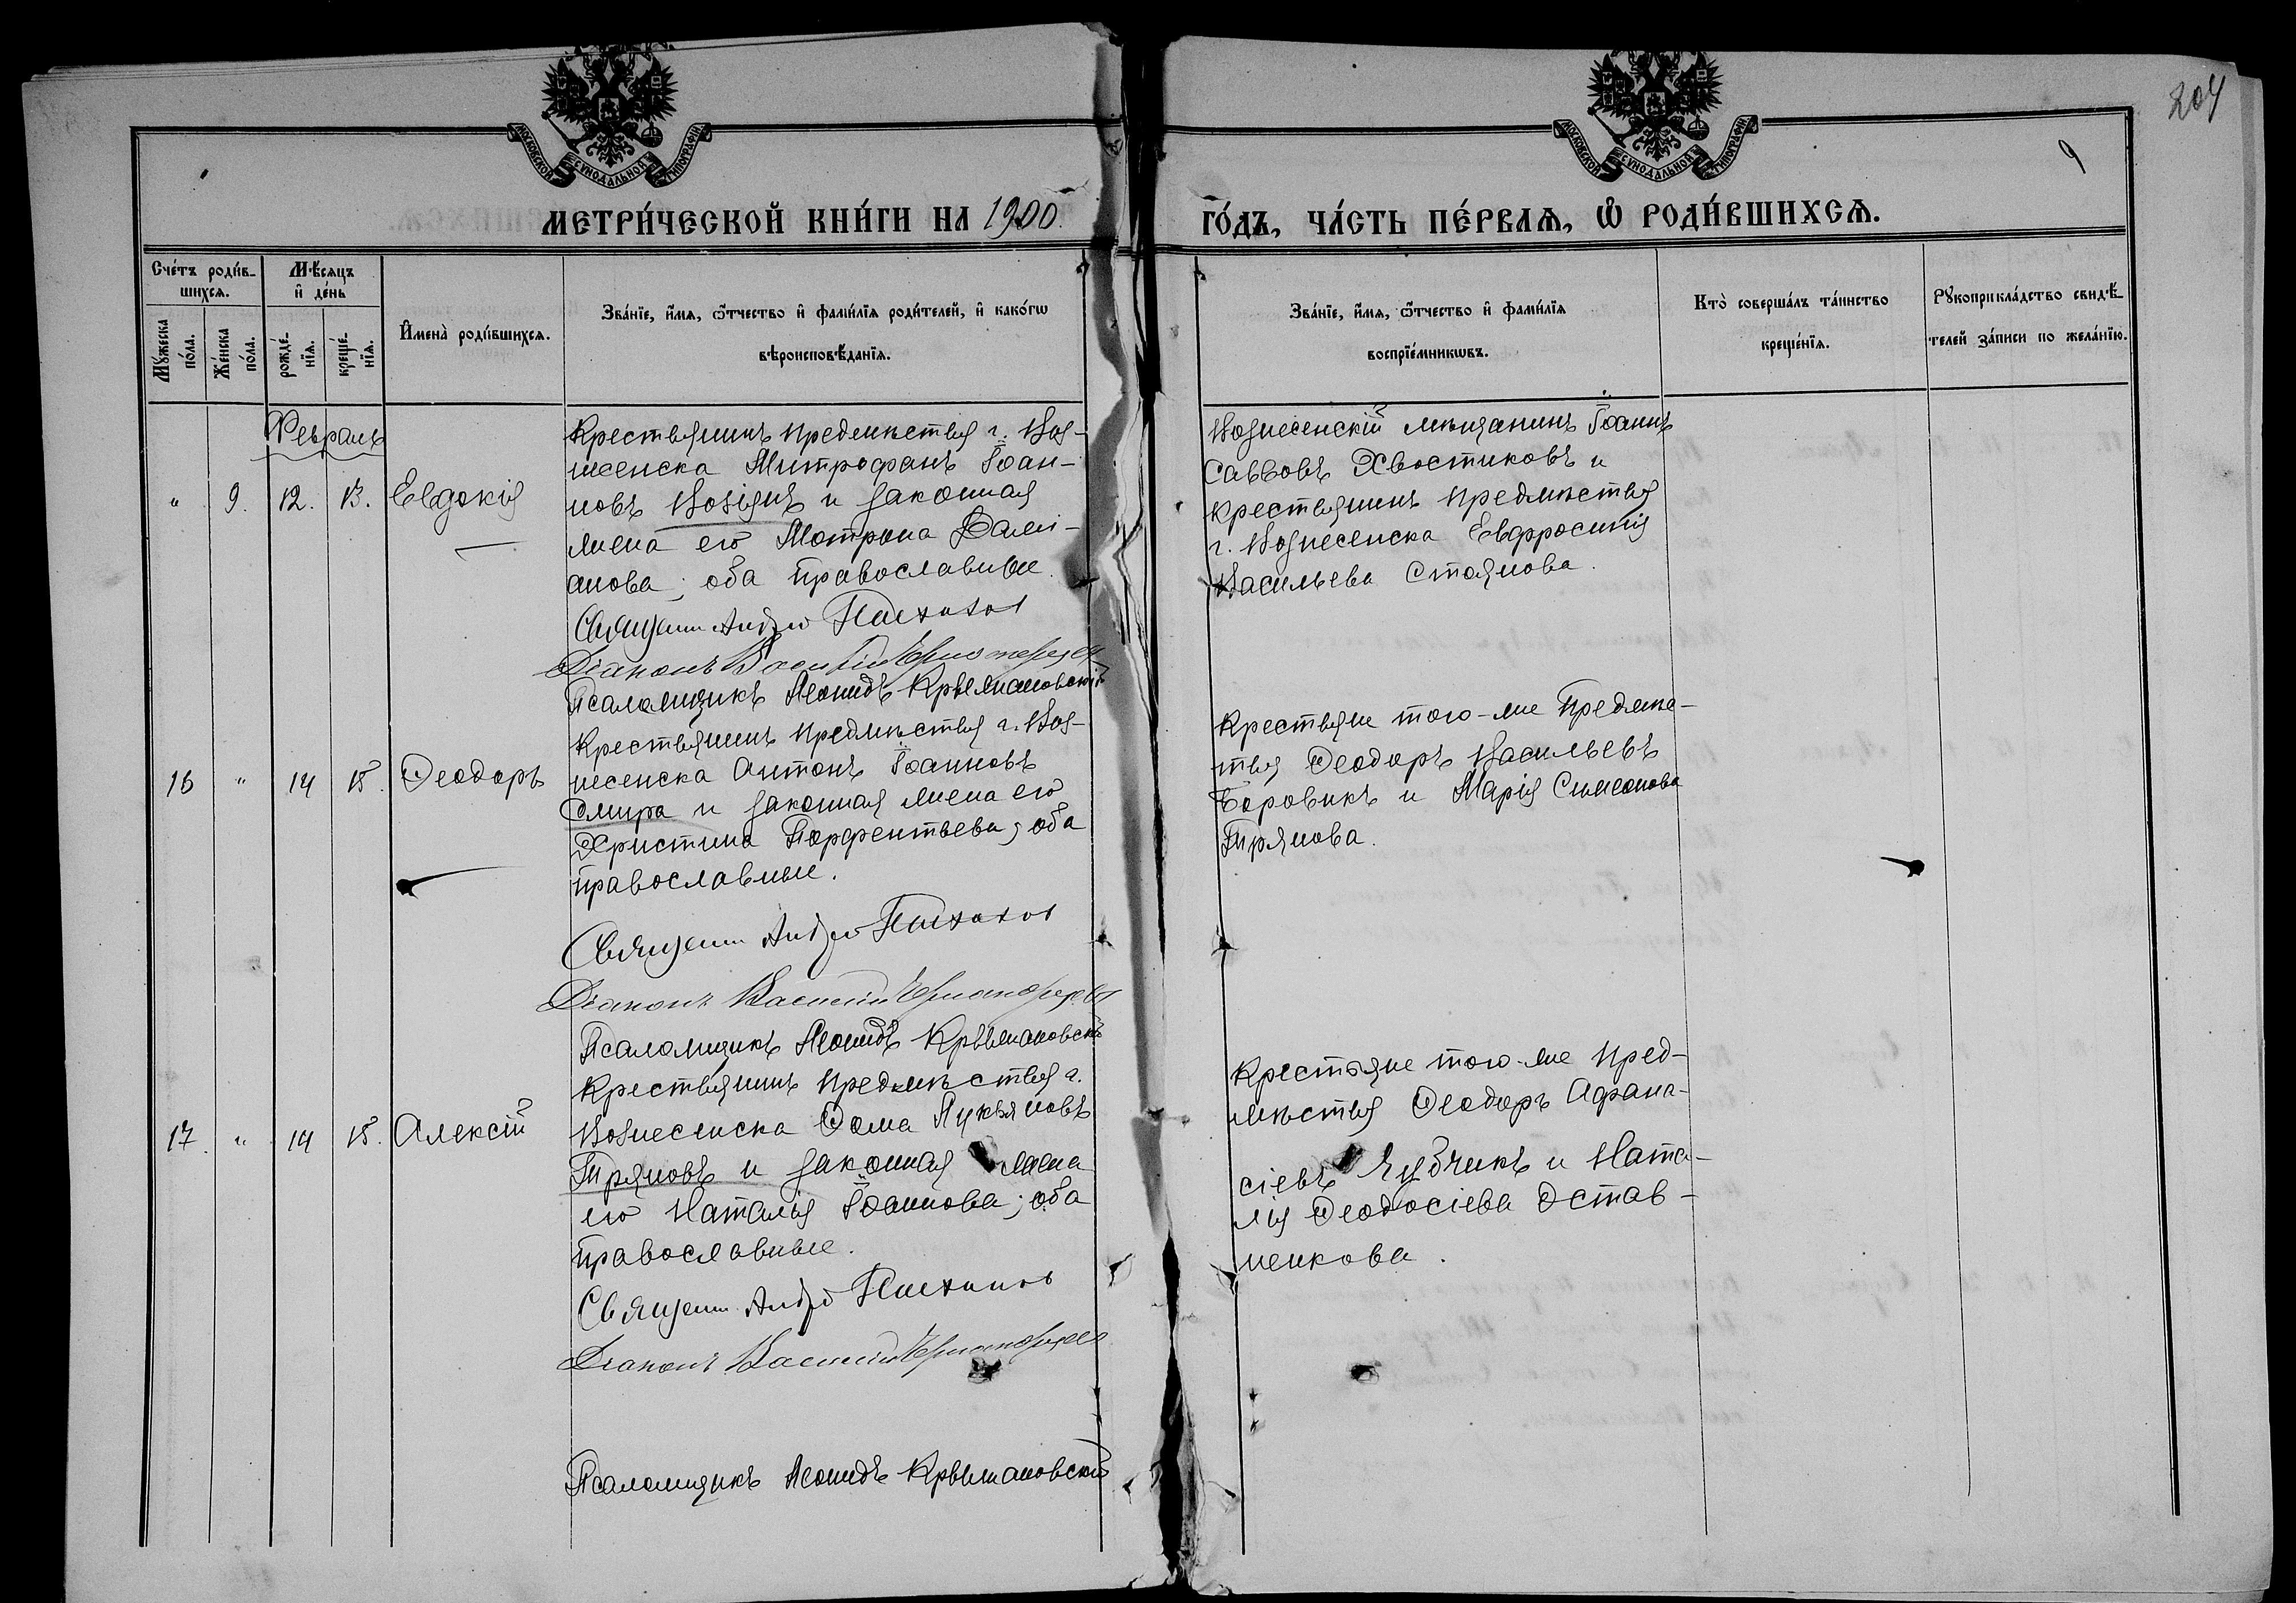 204
9
МОСКОВСКОЙ СѴНОДАЛЬНОЙ ТИПОГРАФІИ
МОСКОВСКОЙ СѴНОДАЛЬНОЙ ТИПОГРАФІИ
МЕТРИ́ЧЕСКОЙ КНИ́ГИ НА 1900
ГО́ДЪ, ЧА́СТЬ ПЕ́РВАѦ, Ѿ РОДИ́ВШИХСѦ.
Сче́тъ роди́в-
шихсѧ.
Мꙋ́жеска по́ла.
Же́нска по́ла.
Мѣ́сѧцъ
и҆ де́нь
рожде́-
нїѧ.
креще́-
нїѧ.
И҆мена̀ роди́вшихсѧ.
Зва́нїе, и҆́мѧ, ѻ҆́тчество и҆ фами́лїѧ роди́телей, и҆ како́гѡ
вѣроисповѣ́данїѧ.
Зва́нїе, и҆́мѧ, ѻ҆́тчество и҆ фами́лїѧ
воспрїе́мникѡвъ.
Кто̀ соверша́лъ та́инство
креще́нїѧ.
Рꙋкоприкла́дство свидѣ́-
телей за́писи по жела́нїю.
Февраль
" 9. 12. 13. Евдокія
Крестьянинъ предмѣстья г. Воз-
несенска Митрофанъ Іоан-
новъ Возіянъ и законная
жена его Мотрона Дамі-
анова; оба православные.
Священн. Андрей
Діаконъ Василій
Псаломщикъ Леонидъ Крыжановскій
Вознесенскій мѣщанинъ Іоаннъ
Саввовъ Хвостиковъ и
крестьянинъ предмѣстья
г. Вознесенска Евфросинія
Васильева Стоянова.
16 " 14 15. Ѳеодоръ
Крестьянинъ предмѣстья г. Воз-
несенска Антонъ Іоанновъ
Смира и законная жена его
Христина Порфентьева; оба
православные.
Священн Андрей
Діаконъ Василій
Псаломщикъ Леонидъ Крыжановскій
Крестьяне того-же Предмѣ-
тья Ѳеодоръ Васильевъ
Боровикъ и Марія Симеонова
Трянова.
17. " 14 15. Алексій
Крестьянинъ предмѣстья г.
Вознесенска Ѳома Лукьяновъ
Тряновъ и законная жена
его Наталія Іоаннова; оба
православные.
Священн. Андрей
Діаконъ Василій
Псаломщикъ Леонидъ Крыжановскій
Крестьяне того-же пред-
мѣстья Ѳеодоръ Афана-
сіевъ Яубчикъ и Ната-
лія Ѳеодосіева Остав-
ненкова.